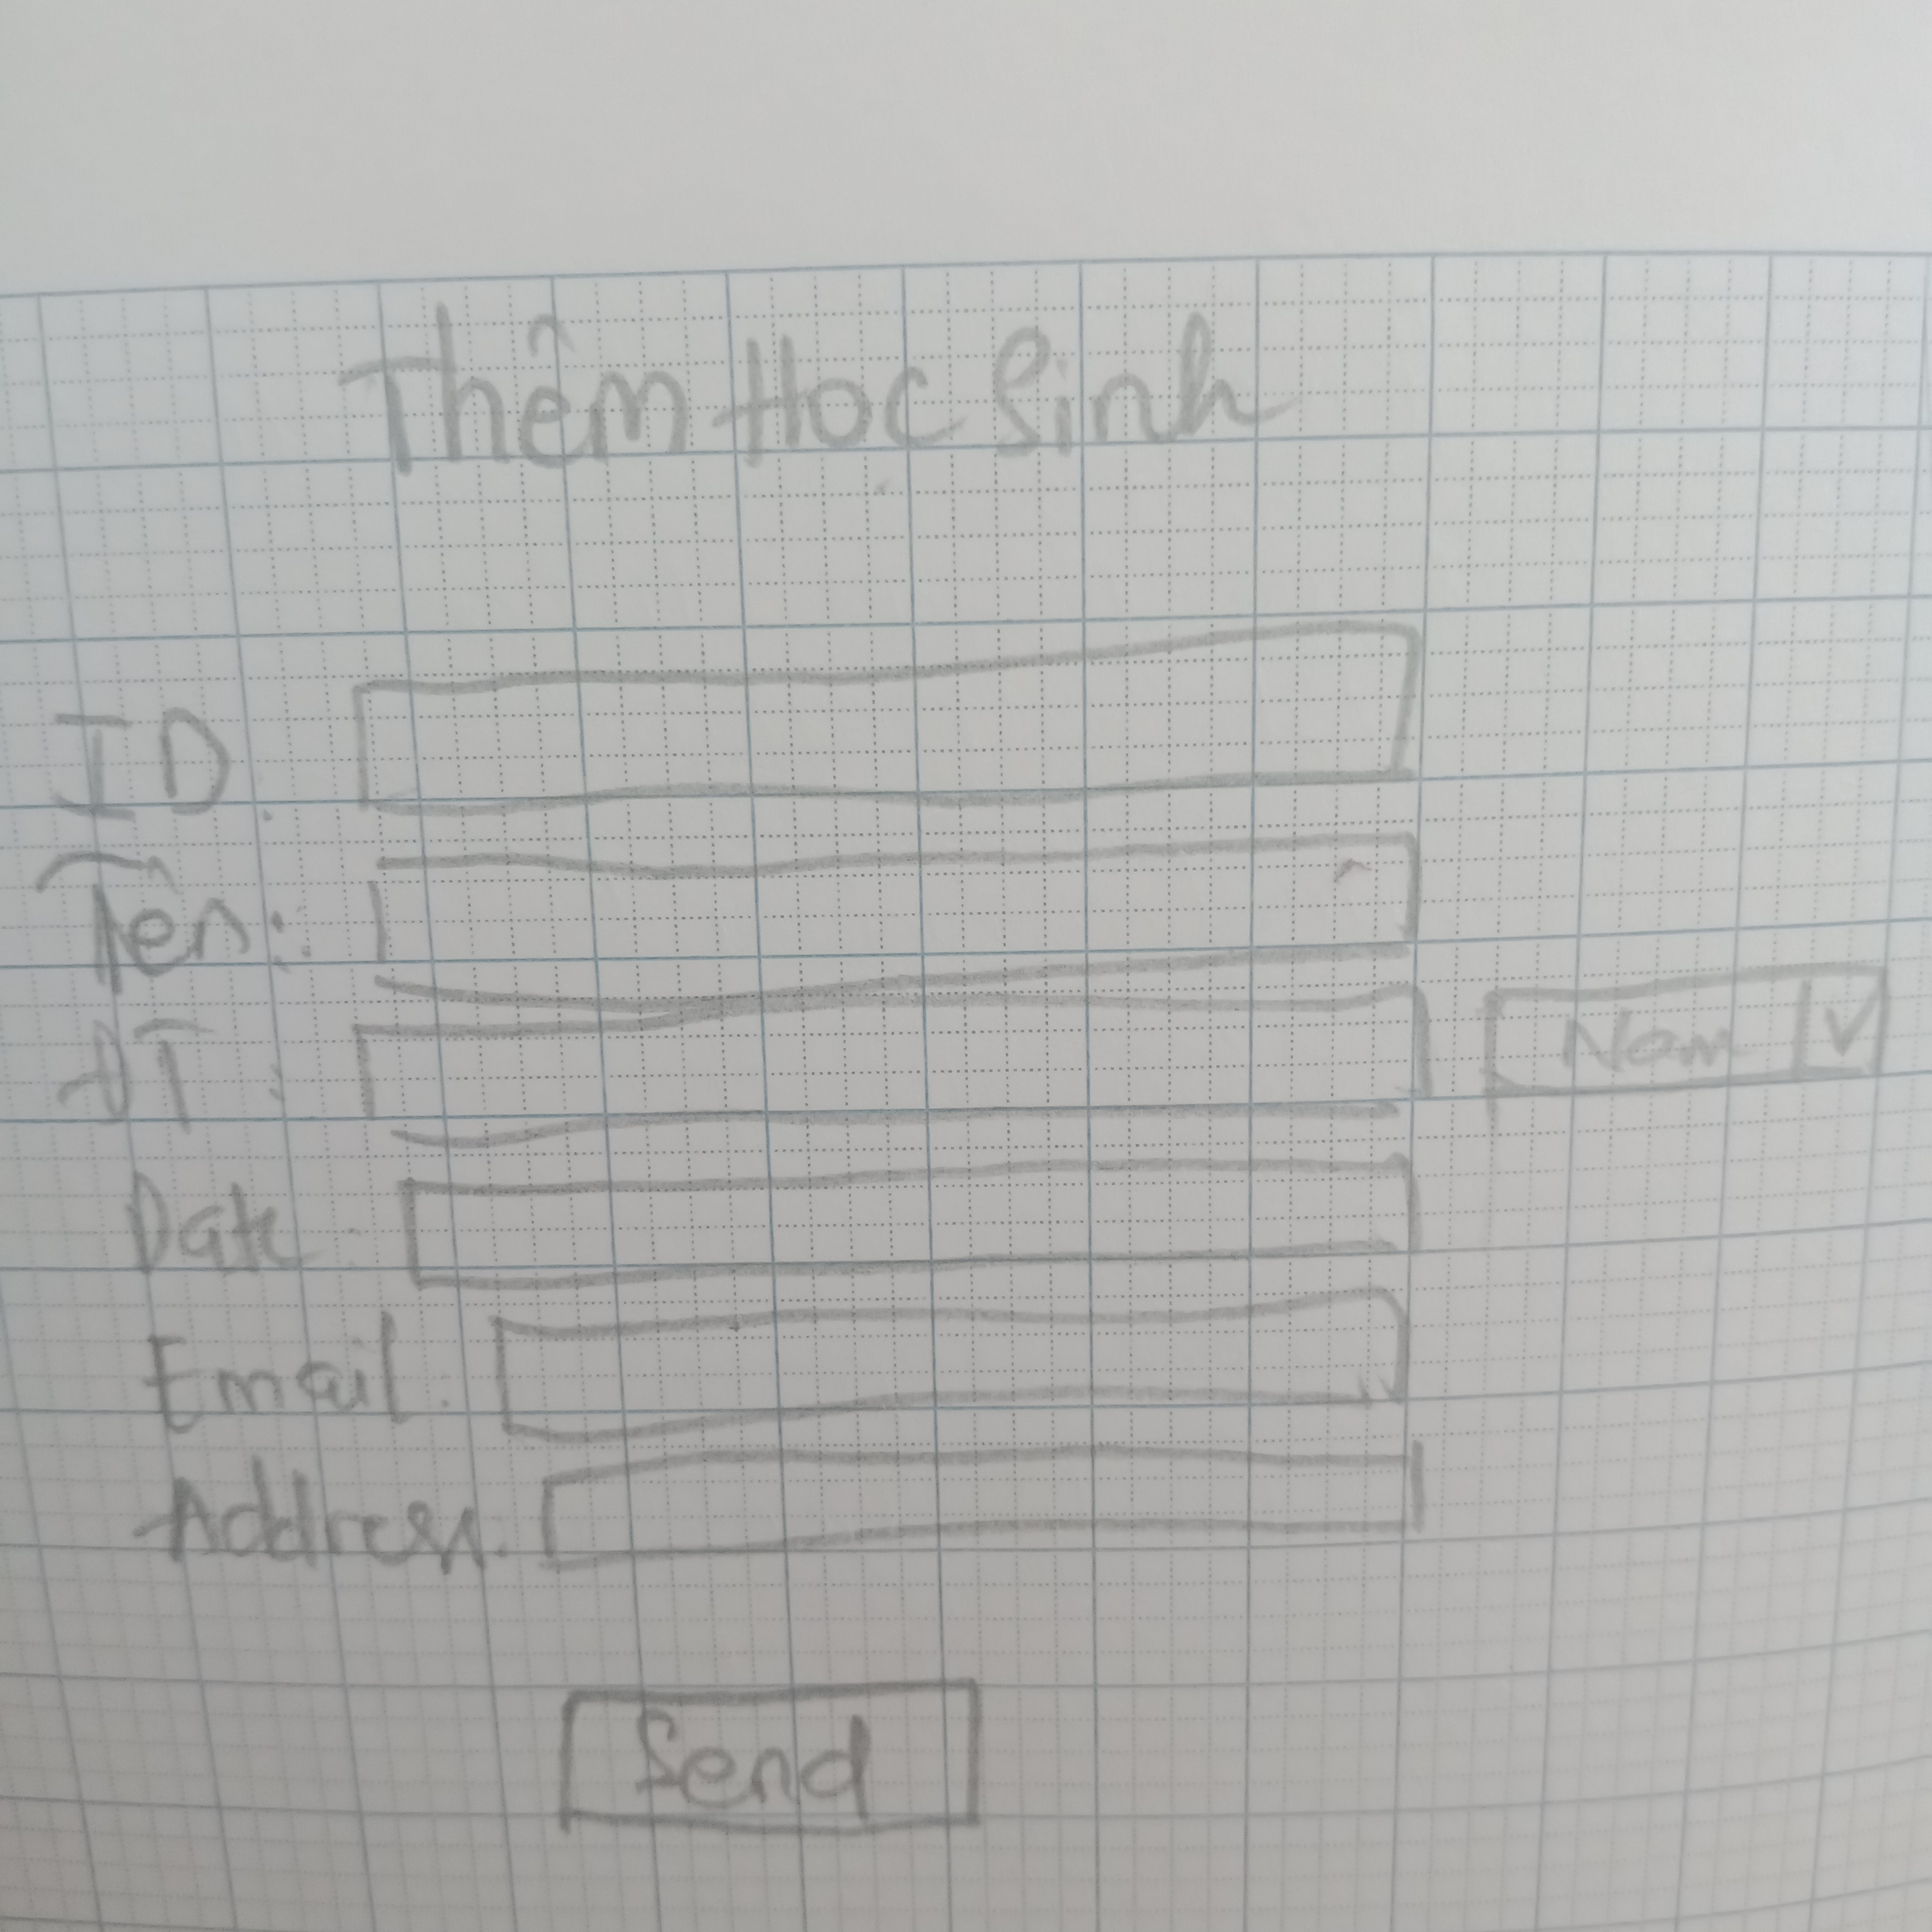 Thêm Học Sinh
ID:
Tên:
ĐT: Nam
Date:
Email:
Address:
Send